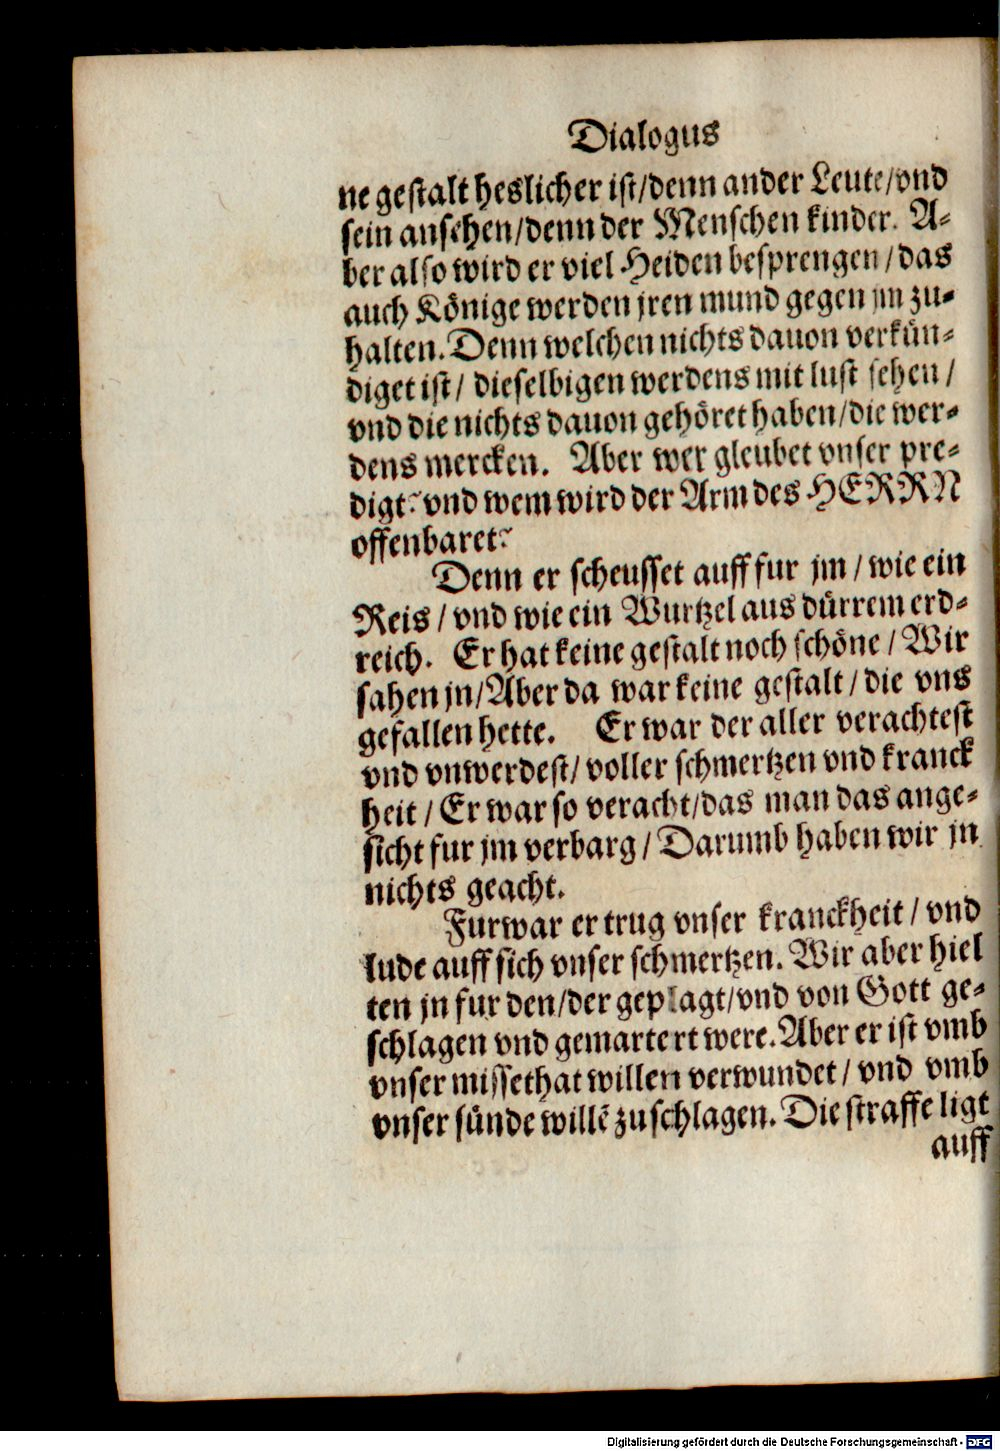 Dialogus
ne gestalt heslicher ist/denn ander Leute/vnd
sein ansehen/denn der Menschen kinder. A-
ber also wird er viel Heiden besprengen/das
auch Könige werden jren mund gegen jm zu-
halten. Denn welchen nichts dauon verkün-
diget ist/ dieselbigen werdens mit lust sehen/
vnd die nichts dauon gehöret haben/die wer-
dens mercken. Aber wer gleubet vnser pre-
digt? vnd wem wird der Arm des HERRN
offenbaret?
Denn er scheusset auff fur jm/ wie ein
Reis/ vnd wie ein Wurtzel aus dürrem erd-
reich. Er hat keine gestalt noch schöne/ Wir
sahen jn/Aber da war keine gestalt/ die vns
gefallen hette. Er war der aller verachtest
vnd vnwerdest/ voller schmertzen vnd kranck
heit/ Er war so veracht/das man das ange-
sicht fur jm verbarg/ Darumb haben wir jn
nichts geacht.
Furwar er trug vnser kranckheit/ vnd
lude auff sich vnser schmertzen. Wir aber hiel
ten jn fur den/der geplagt/vnd von Gott ge-
schlagen vnd gemartert were. Aber er ist vmb
vnser missethat willen verwundet/ vnd vmb
vnser sünde willē zuschlagen. Die straffe ligt
auff
Digitalisierung gefördert durch die Deutsche Forschungsgemeinschaft - DFG